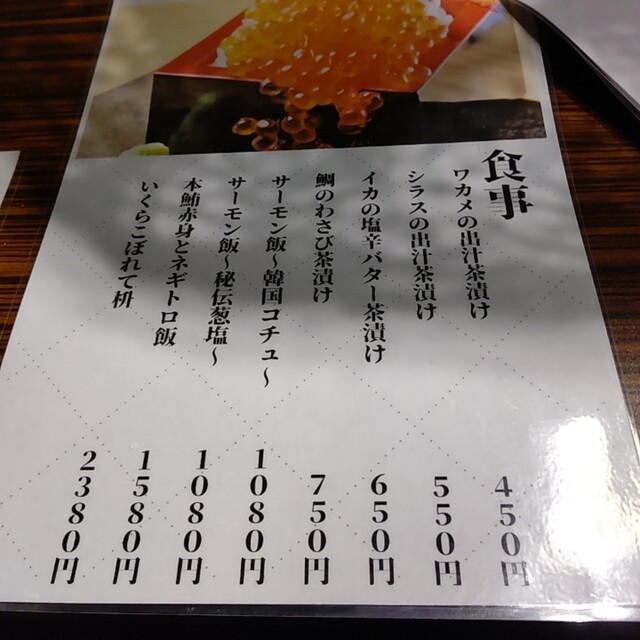 食事
ワカメの出汁茶漬け
450円
シラスの出汁茶漬け
550円
イカの塩辛バター茶漬け
650円
鯛のわさび茶漬け
750円
サーモン飯~韓国コチュ~
1080円
サーモン飯~秘伝葱塩~
1080円
本鮪赤身とネギトロ飯
1580円
いくらこぼれて枡
2380円